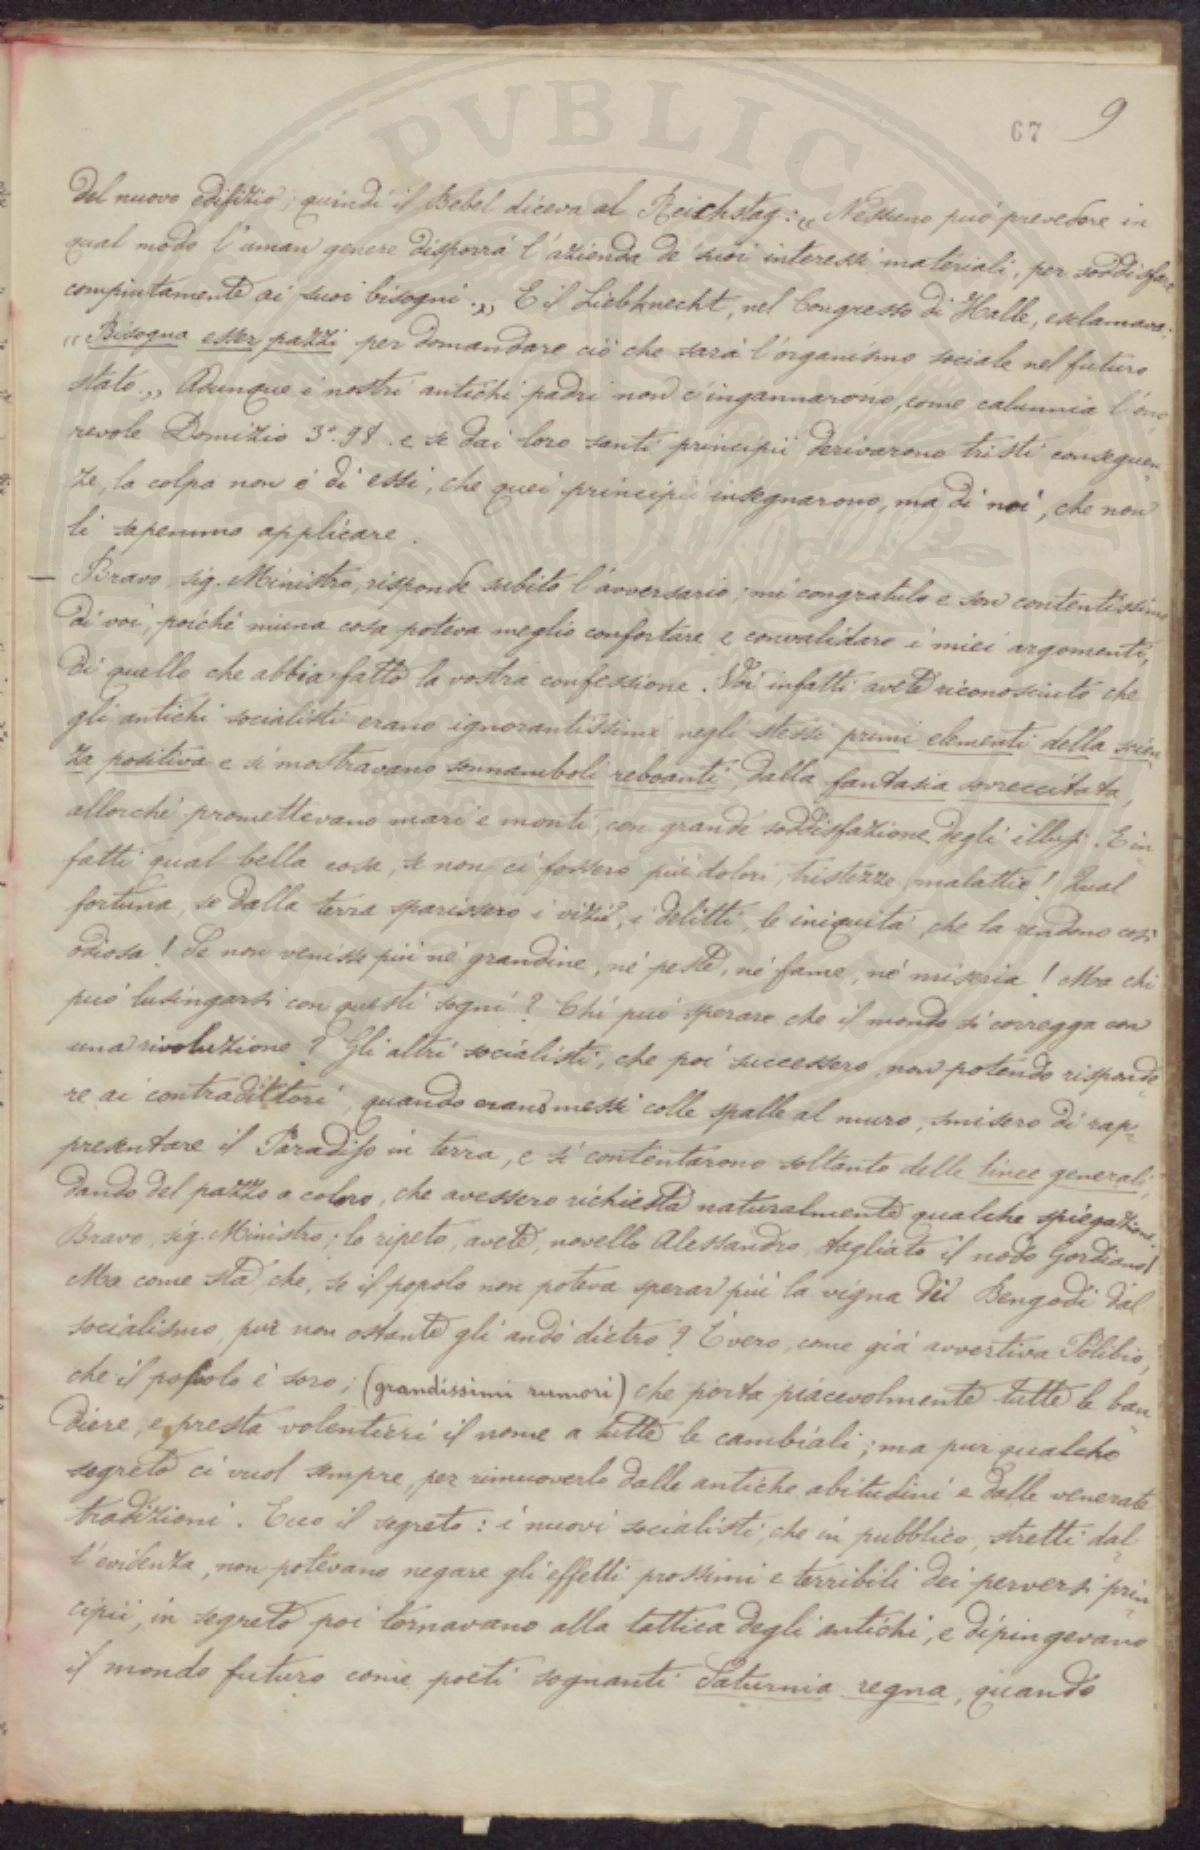 PVBLICA
67 9
del nuovo edifizio; quindi il Bebel diceva al Reichstag: „ Nessuno può prevedere in
qual modo l'uman genere disporrà l'azienda de' suoi interessi materiali, per soddisfare
compiutamente ai suoi bisogni.„ E il Liebknecht, nel Congresso di Halle, esclamava:
„ Bisogna esser pazzi per domandare ciò che sarà l'organismo sociale nel futuro
stato.„ Adunque i nostri antichi padri non c'ingannarono, come calunnia l'ono-
revole Domizio 3°. 98. e se dai loro santi principii derivarono tristi conseguen-
ze, la colpa non è di essi, che quei principii insegnarono, ma di noi, che non
li sapemmo applicare.
— Bravo, sig. Ministro, risponde subito l'avversario; mi congratulo e son contentissimo
di voi, poiché niuna cosa poteva meglio confortare e convalidare i miei argomenti,
di quello che abbia fatto la vostra confessione. Voi infatti avete riconosciuto che
gli antichi socialisti erano ignorantissimi negli stessi primi elementi della scien-
za positiva e si mostravano sonnamboli reboanti, dalla fantasia sovreccitata,
allorché promettevano mari e monti, con grande soddisfazione degli illusi. E in-
fatti qual bella cosa, se non ci fossero più dolori, tristezze, malattie! Qual
fortuna, se dalla terra sparissero i vizii, i delitti, le iniquità, che la rendono così
odiosa! Se non venisse più né grandine, né peste, né fame, né miseria! Ma chi
può lusingarsi con questi sogni? Chi può sperare che il mondo si corregga con
una rivoluzione? Gli altri socialisti, che poi successero, non potendo risponde-
re ai contradittori, quando erano messi colle spalle al muro, smisero di rap-
presentare il Paradiso in terra, e si contentarono soltanto delle linee generali,
dando del pazzo a coloro, che avessero richiesta naturalmente qualche spiegazione.
Bravo, sig. Ministro; lo ripeto, avete, novello Alessandro, tagliato il nodo Gordiano!
Ma come sta, che, se il popolo non poteva sperar più la vigna dei Bengodi dal
socialismo, pur non ostante gli andò dietro? È vero, come già avvertiva Polibio,
che il popolo è soro; (grandissimi rumori) che porta piacevolmente tutte le ban-
diere, e presta volentieri il nome a tutte le cambiali; ma pur qualche
segreto ci vuol sempre, per rimuoverlo dalle antiche abitudini e dalle venerate
tradizioni. Ecco il segreto: i nuovi socialisti, che in pubblico, stretti dal-
l'evidenza, non potevano negare gli effetti prossimi e terribili dei perversi prin-
cipii, in segreto poi tornavano alla tattica degli antichi, e dipingevano
il mondo futuro come poeti sognanti Saturnia regna, quando